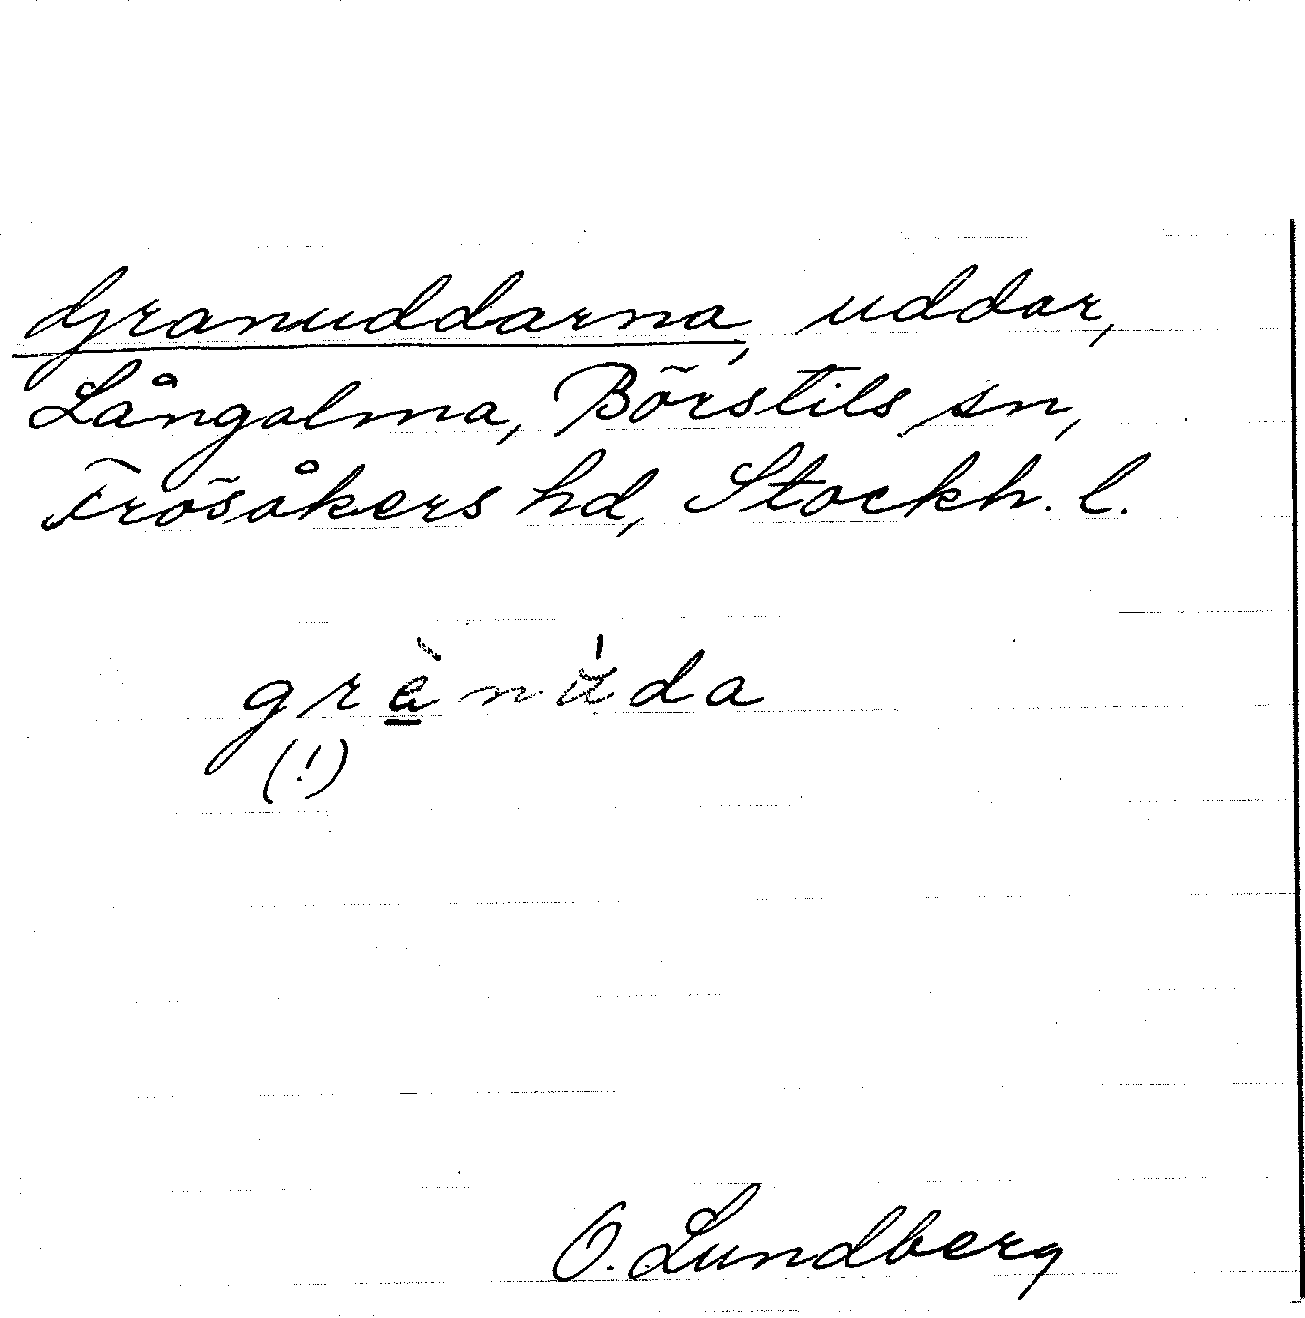 Granuddarna, uddar,
Långalma, Börstils sn,
Frösåkers hd, Stockh. l.
(!)
O. Lundberg